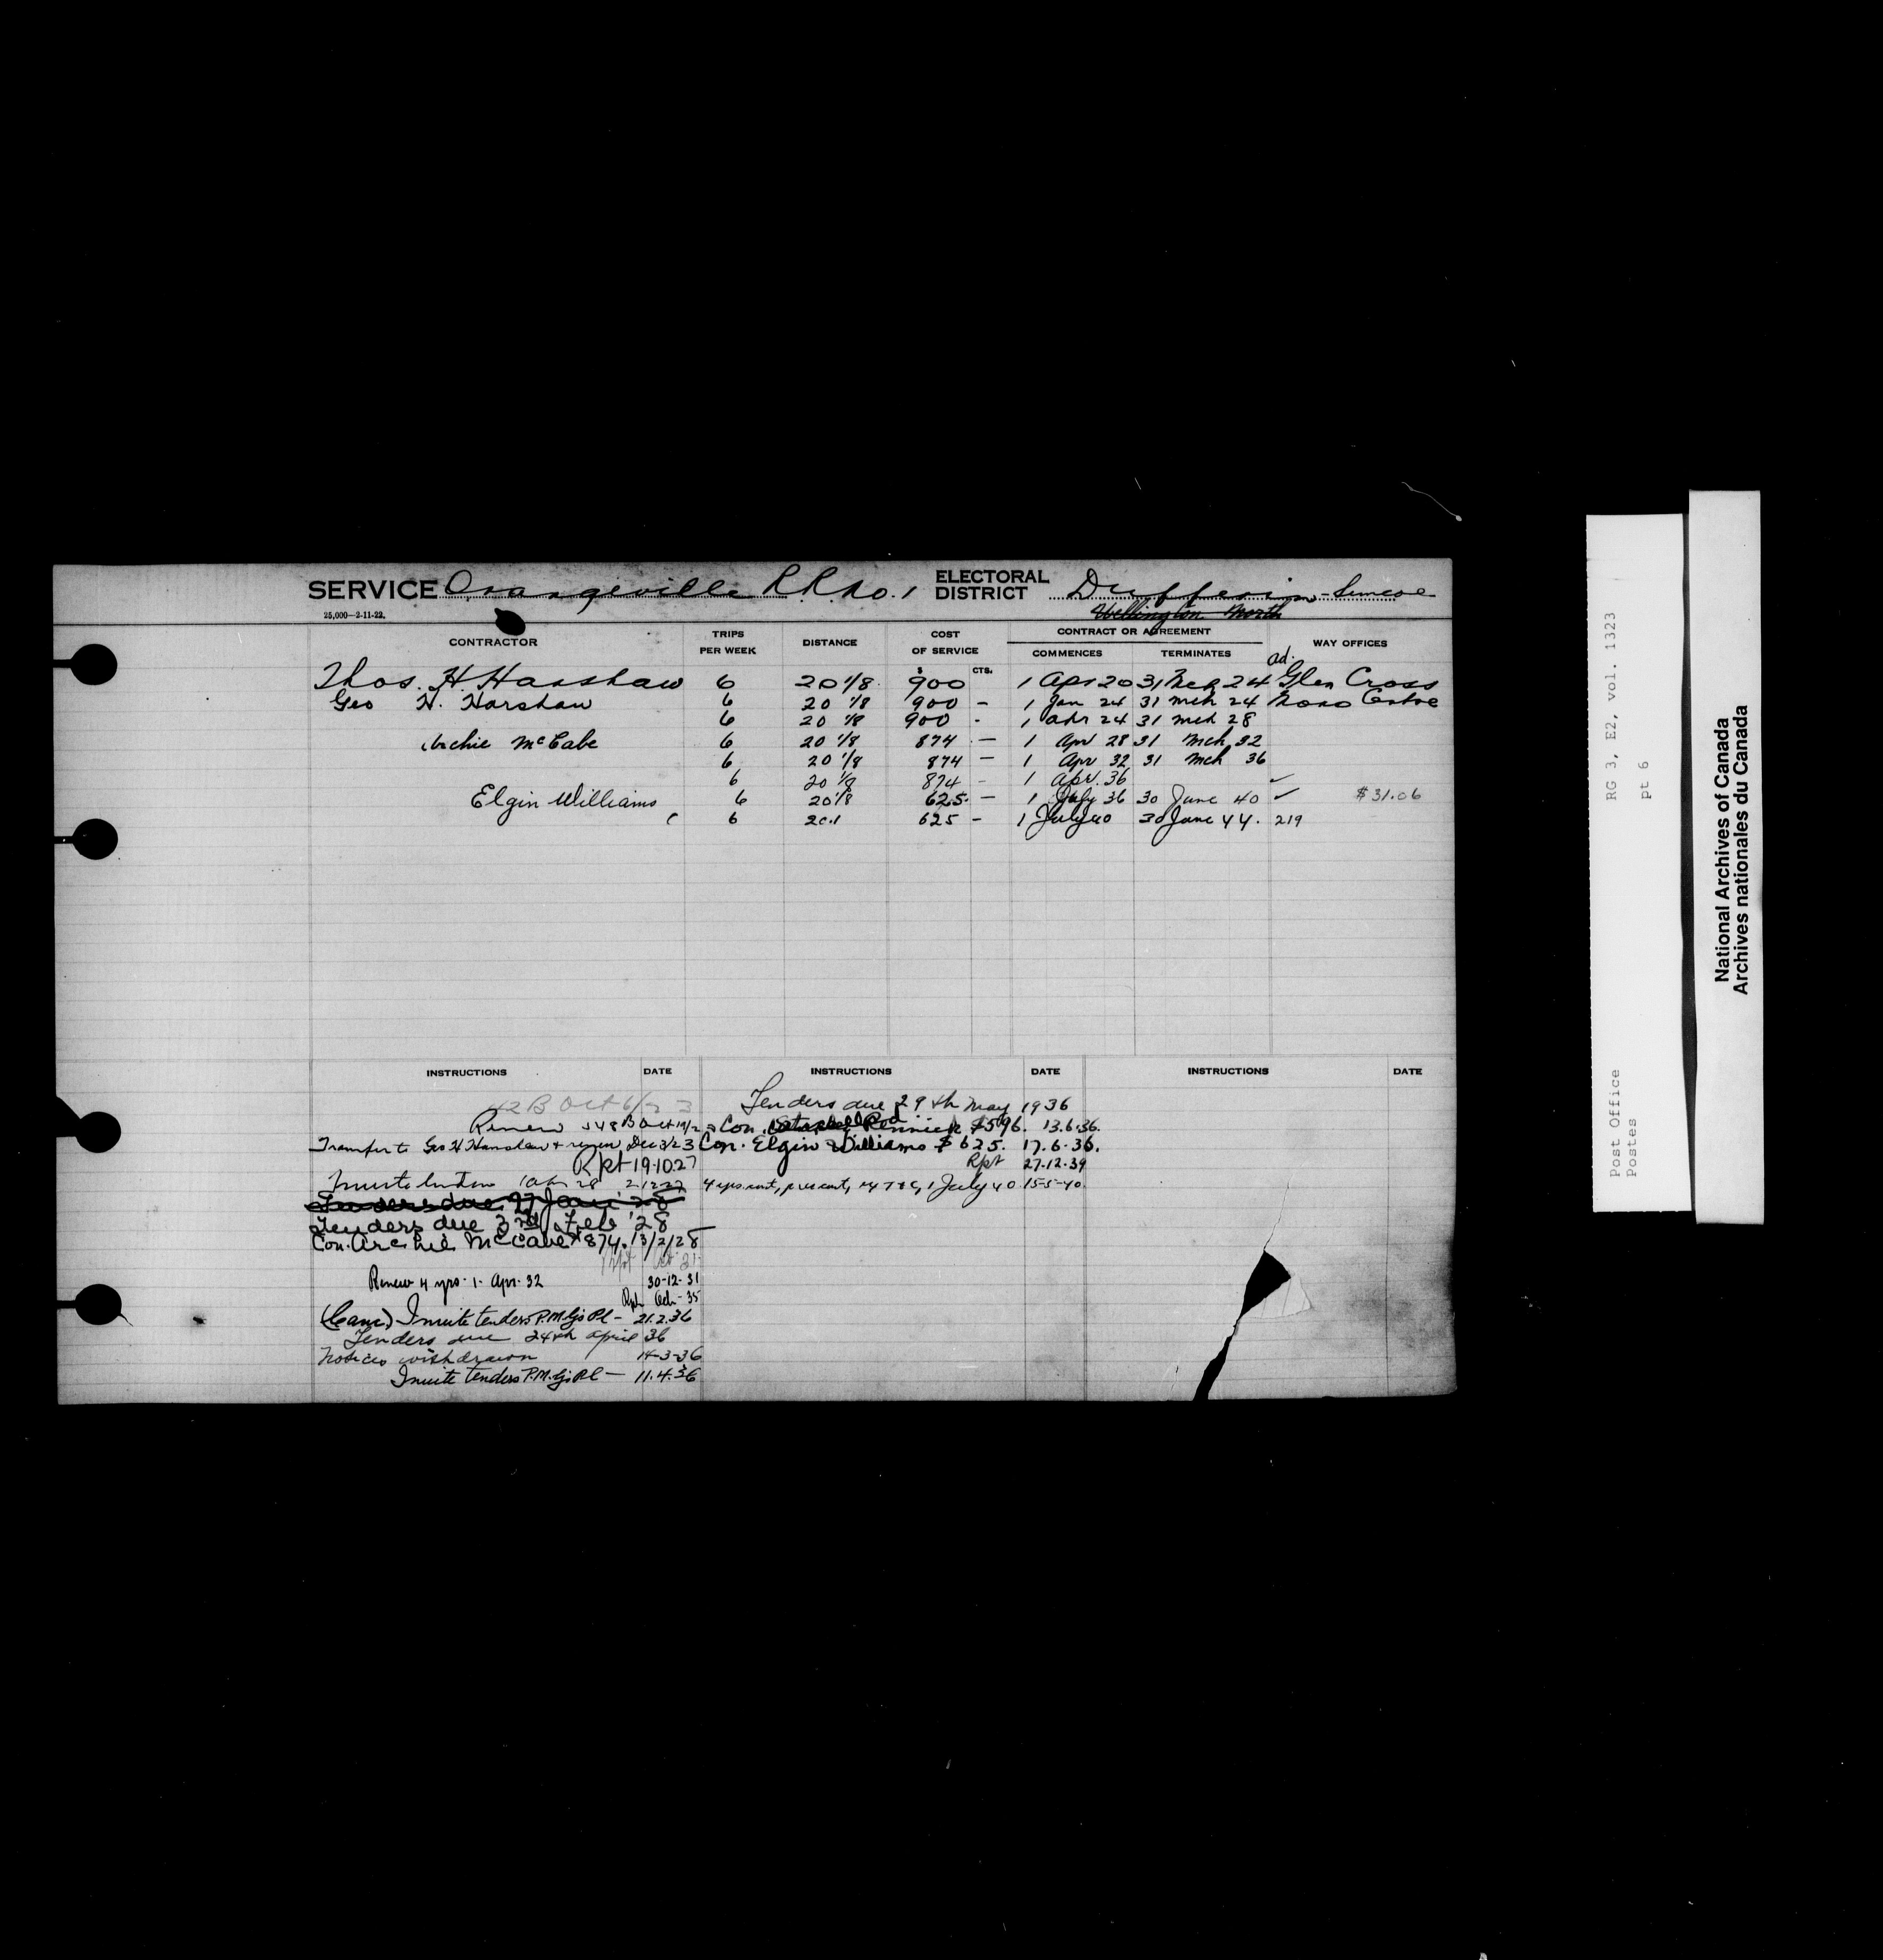 SERVICE Orangeville R.R. No. 1 ELECTORAL DISTRICT Dufferin - Simcoe
Wellington North
25,000—2-11-22.
CONTRACTOR TRIPS PER WEEK DISTANCE COST OF SERVICE CONTRACT OR AGREEMENT COMMENCES TERMINATES WAY OFFICES
$ CTS. ad.
Thos. H. Hanshaw 6 20 1/8 900 1 Apr 20 31 Mch 24 Glen Cross
Geo H. Harshaw 6 20 1/8 900 - 1 Jan 24 31 mch 24 Mono Centre
6 20 1/8 900 - 1 apr 24 31 mch 28
Archie McCabe 6 20 1/8 874 — 1 Apr 28 31 Mch 32
6 20 1/8 874 — 1 Apr 32 31 Mch 36
6 20 1/8 874 - 1 Apr. 36
Elgin Williams 6 20 1/8 625. — 1 July 36 30 June 40 ✓ $31.06
6 20.1 625 - 1 July 40 30 June 44. 219
INSTRUCTIONS DATE INSTRUCTIONS DATE INSTRUCTIONS DATE
42B Oct 6/23
Renew 548 B Oct 19/2
Transfer to Geo H Hanshaw + renew Dec 3/23
Rpt 19.10.27
Invite tenders 1 Apr 28 2.12.27
Tenders due 27 Jan '28
Tenders due 3rd Feb '28
Con. Archie McCabe $874. 13/2/28
Rpt Oct 31.
Renew 4 yrs. 1. Apr. 32 30-12-31
Rpt Oct- 35
(Canc.) Invite tenders P.M. G's Pl - 21.2.36
Tenders due 24th april 36
Notices withdrawn 14-3-36
Invite tenders P.M. G's Pl — 11.4.36
Tenders due 29th May 1936
Con. Rennick $596. 13.6.36.
Con. Elgin Williams $625. 17.6.36.
Rpt 27.12.39
1 July 40 15-5-40.
RG 3, E2, vol. 1323
pt 6
Post Office
Postes
National Archives of Canada
Archives nationales du Canada